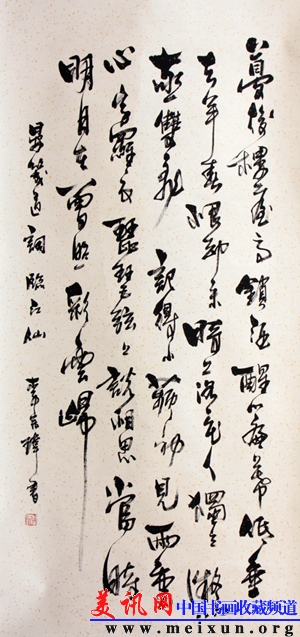 夢後樓臺高鎖酒醒簾幕低垂
去年春恨却来時落花人獨立微雨
燕雙飛 記得小蘋初見兩重
心字羅衣琵琶弦上說相思當時
明月在曾照彩雲歸
晏幾道詞臨江仙 李書
美讯网 中国书画收藏频道
www.meixun.org